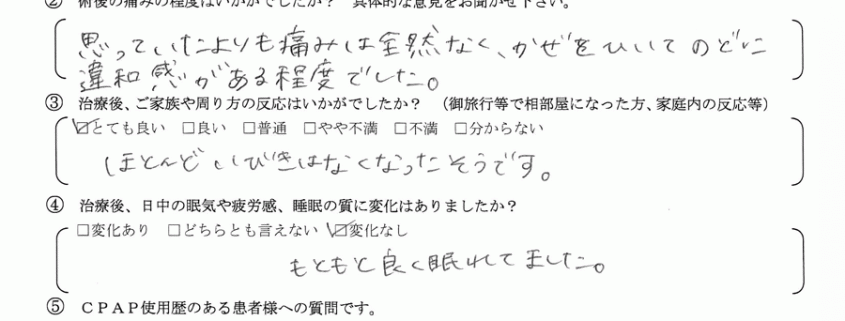 ② 術後の痛みの程度はいかがでしたか？ 具体的な意見をお聞かせ下さい。
思っていたよりも痛みは全然なく、かぜをひいてのどに
違和感がある程度でした。
③ 治療後、ご家族や周り方の反応はいかがでしたか？ （御旅行等で相部屋になった方、家庭内の反応等）
☑とても良い □良い □普通 □やや不満 □不満 □分からない
ほとんどいびきはなくなったそうです。
④ 治療後、日中の眠気や疲労感、睡眠の質に変化はありましたか？
□変化あり □どちらとも言えない ☑変化なし
もともと良く眠れてました。
⑤ ＣＰＡＰ使用歴のある患者様への質問です。